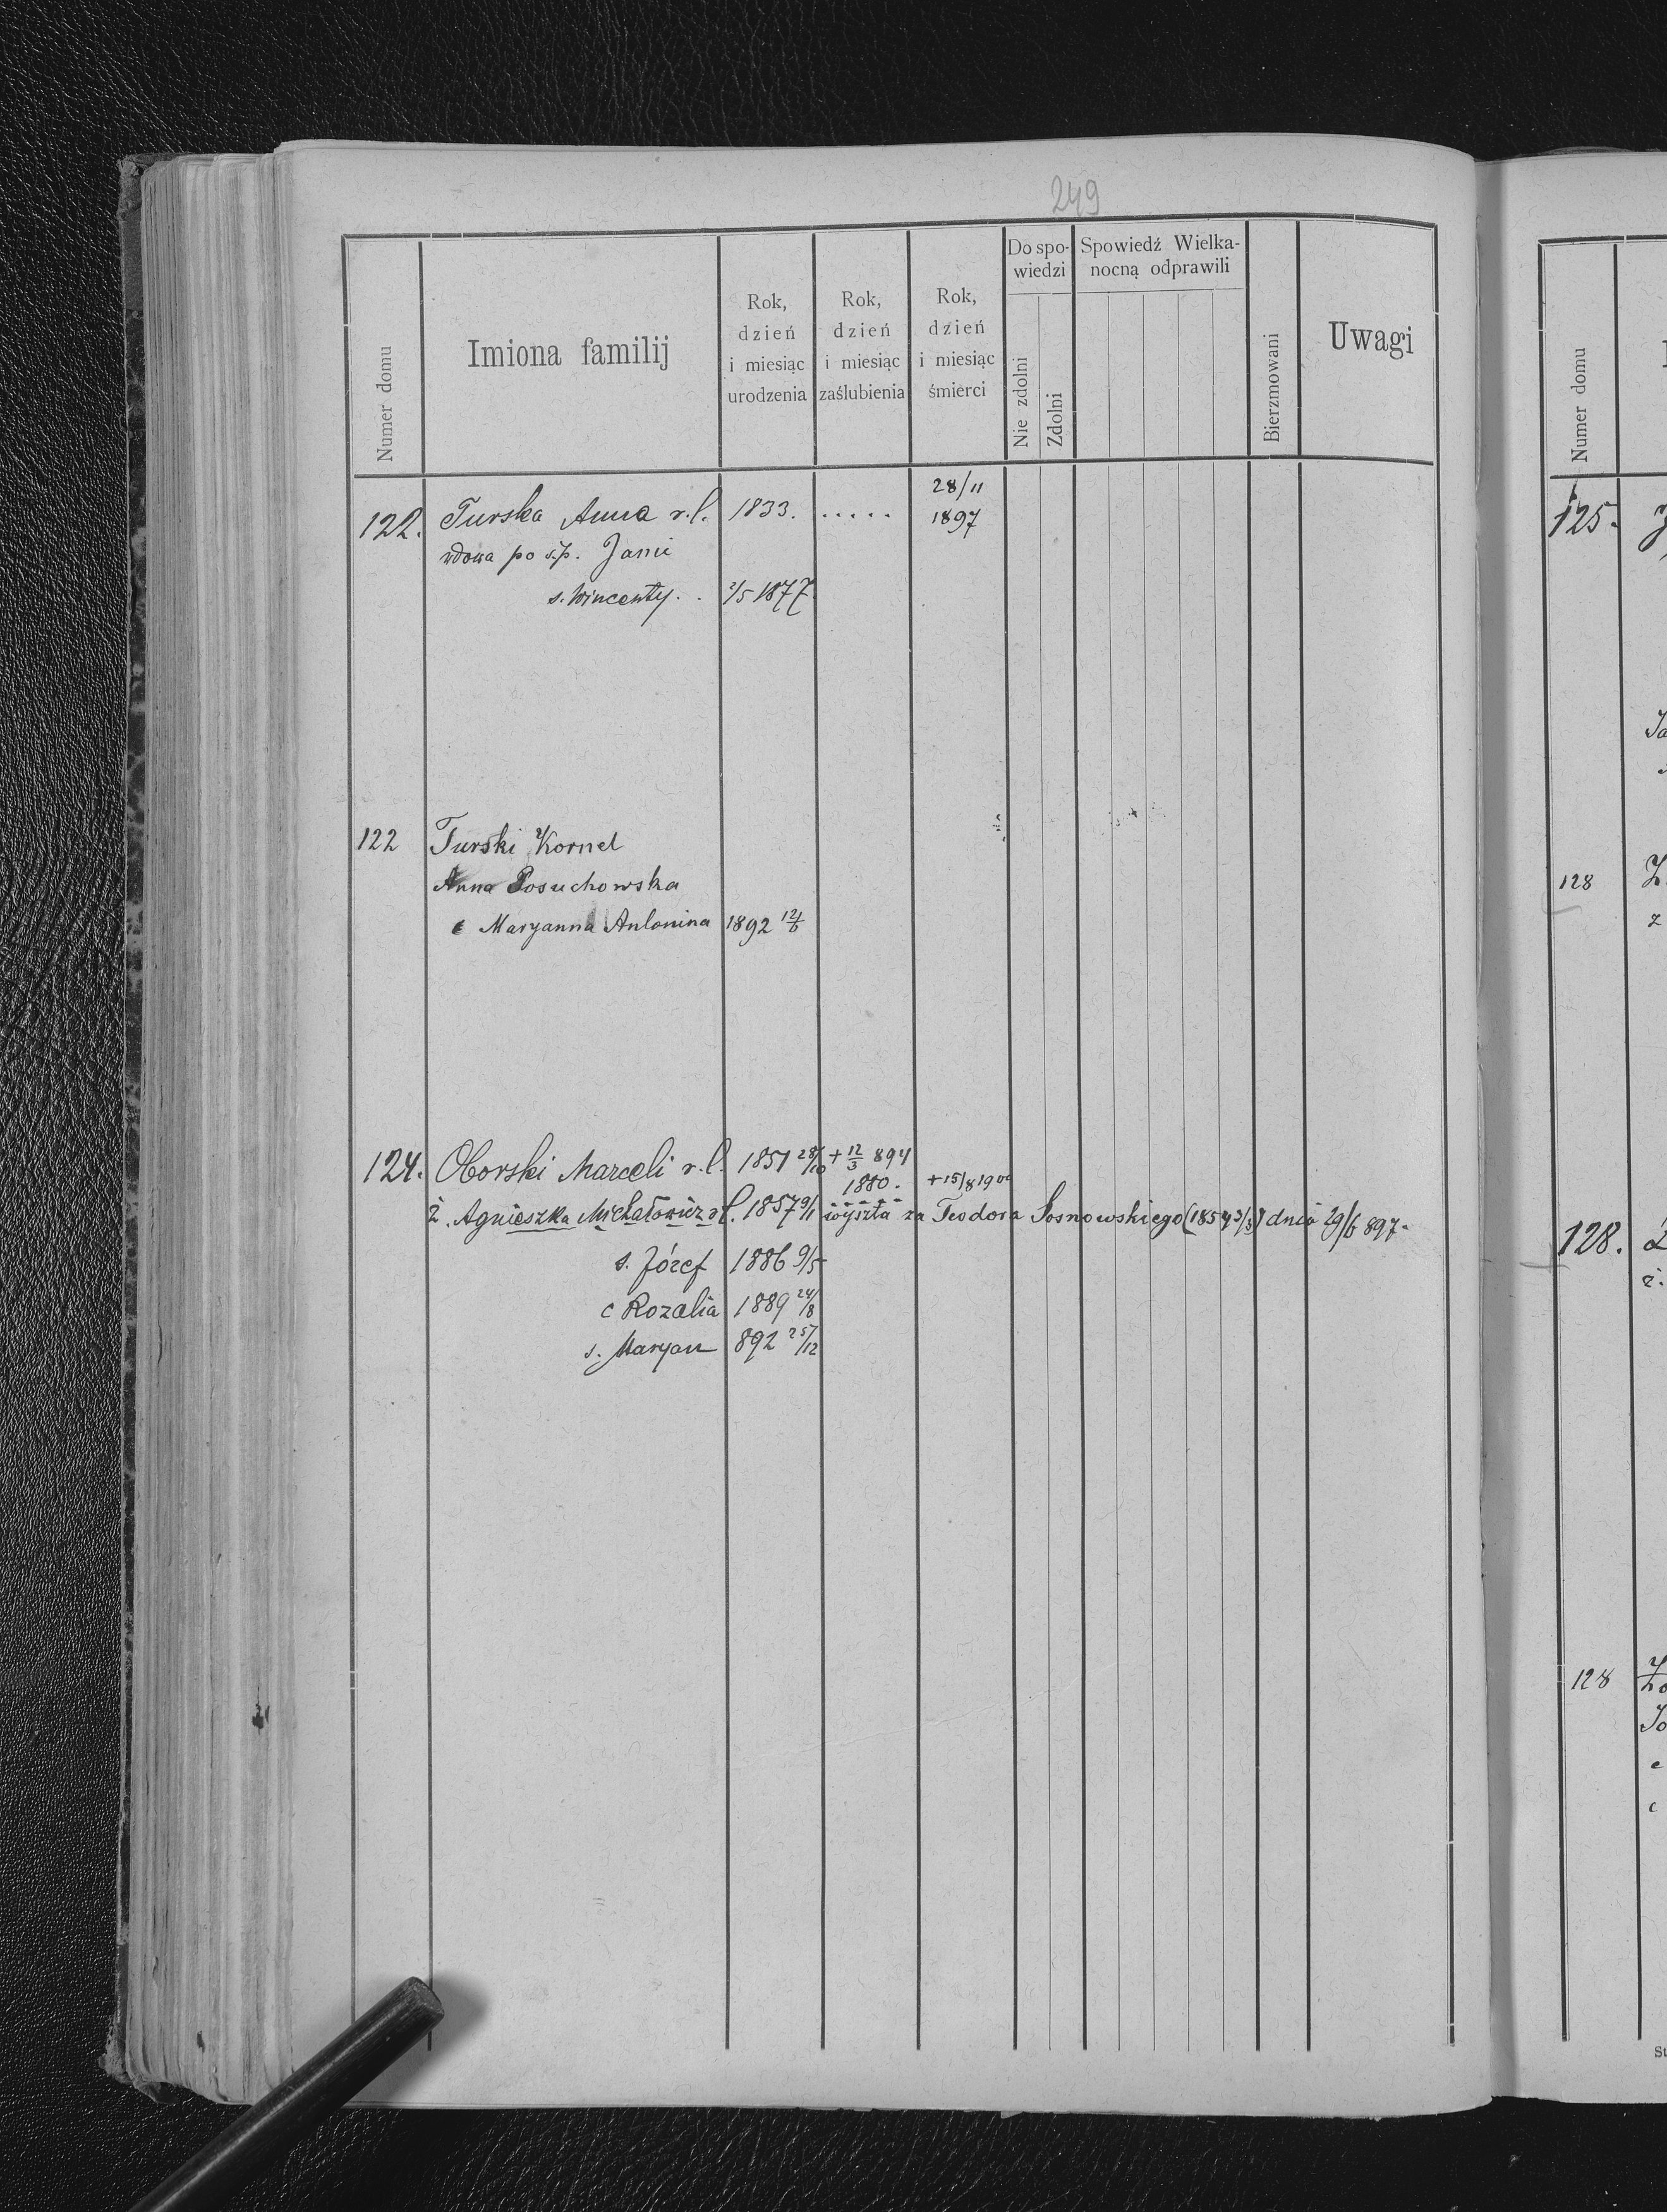 249
Numer domu
Imiona familij
Rok, dzień i miesiąc urodzenia
Rok, dzień i miesiąc zaślubienia
Rok, dzień i miesiąc śmierci
Do spo-
wiedzi
Nie zdolni
Zdolni
Spowiedź Wielka-
nocną odprawili
Bierzmowani
Uwagi
28/11
122. Turska Anna r.l. 1833. ..... 1897
wdowa po ś.p. Janie
s. Wincenty. . 2/5 1877
122 Turski Kornel
Anna Posuchowska
c Maryanna Antonina 1892 12/6
124. Oborski Marceli r.l. 1851 28/10 + 12/3 894
1880. +15/8 1900
ż. Agnieszka Michałowicz r.l. 1857 9/1 wyszła za Teodora Sosnowskiego (1854 3/3) dnia 29/6 897.
s. Józef 1886 9/5
c Rozalia 1889 24/8
s. Maryan 892 25/12
Numer domu
125.
Ja
128
z
128.
ż.
128
Jo
c
c
St